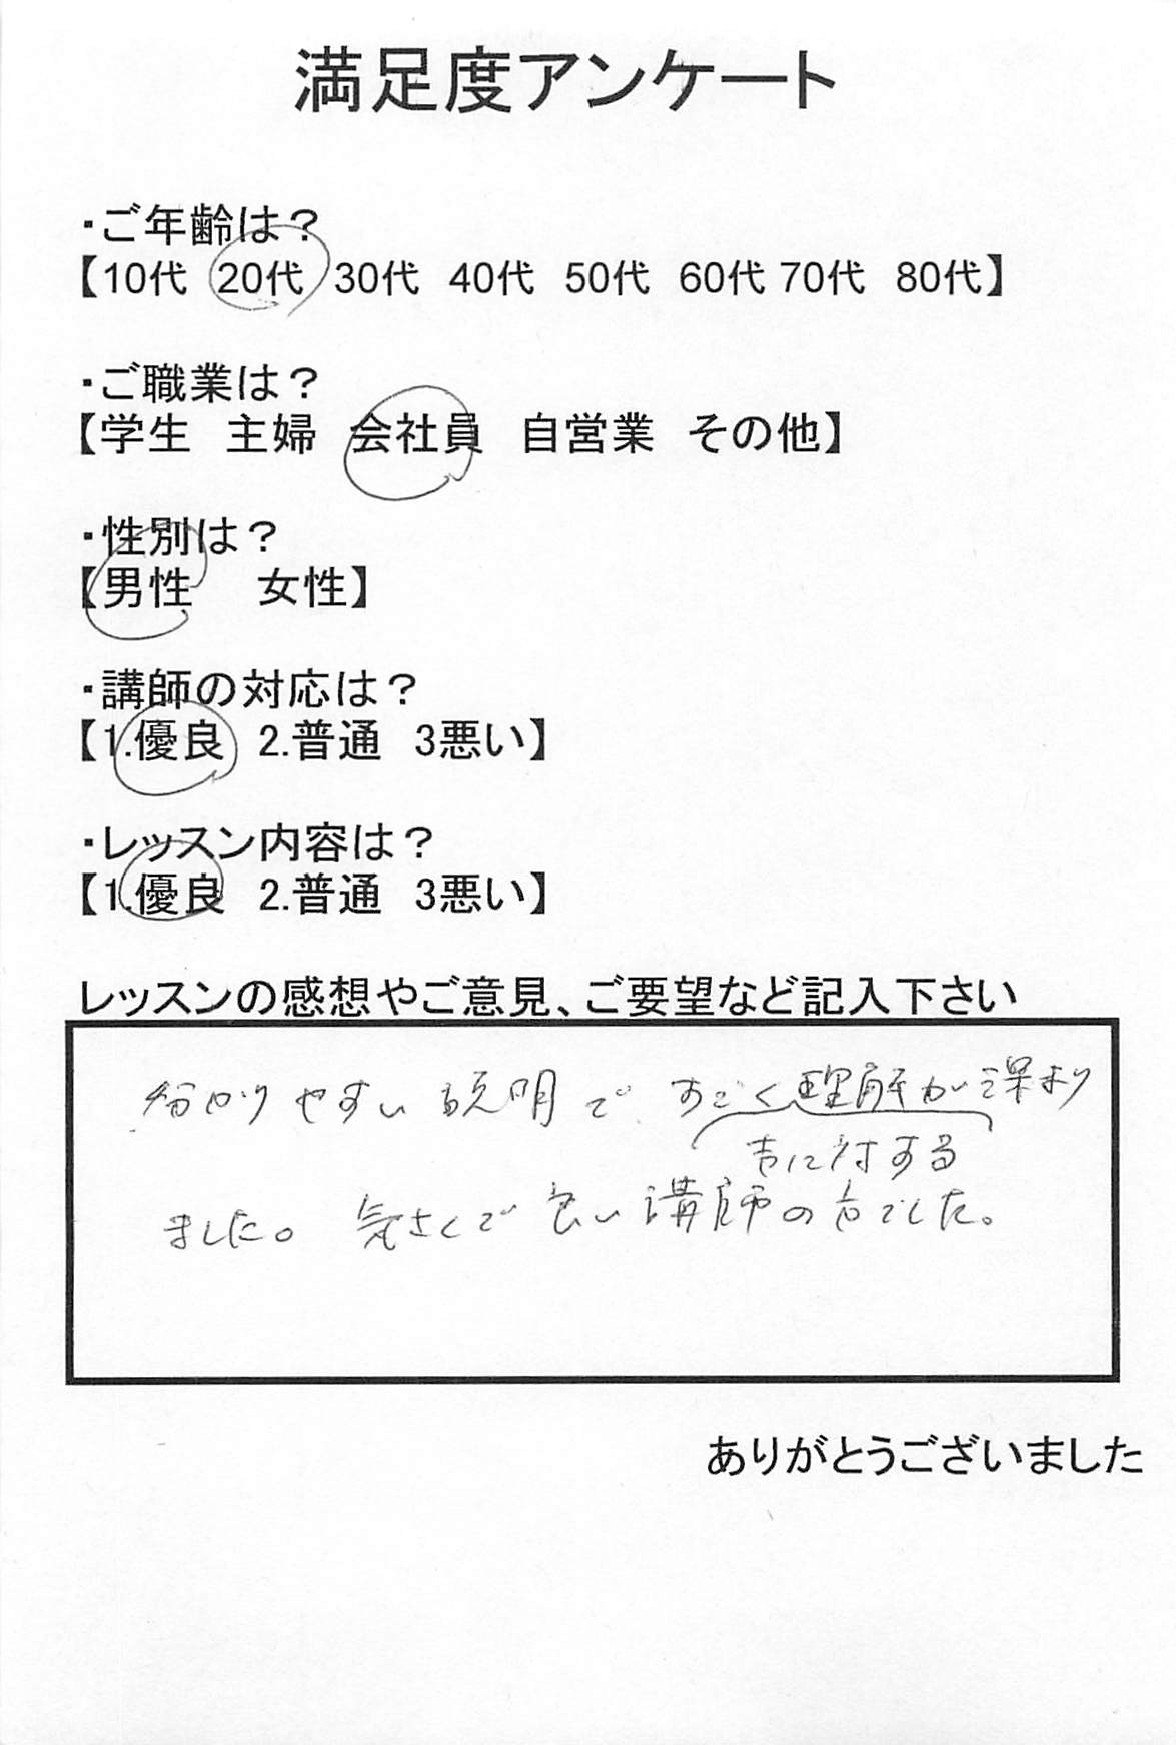 満足度アンケート
・ご年齢は？
【10代 20代 30代 40代 50代 60代 70代 80代】
・ご職業は？
【学生 主婦 会社員 自営業 その他】
・性別は？
【男性 女性】
・講師の対応は？
【1.優良 2.普通 3悪い】
・レッスン内容は？
【1.優良 2.普通 3悪い】
レッスンの感想やご意見、ご要望など記入下さい
分かりやすい説明で すごく理解が深まり
に対する
ました。 気さくで良い講師の方でした。
ありがとうございました